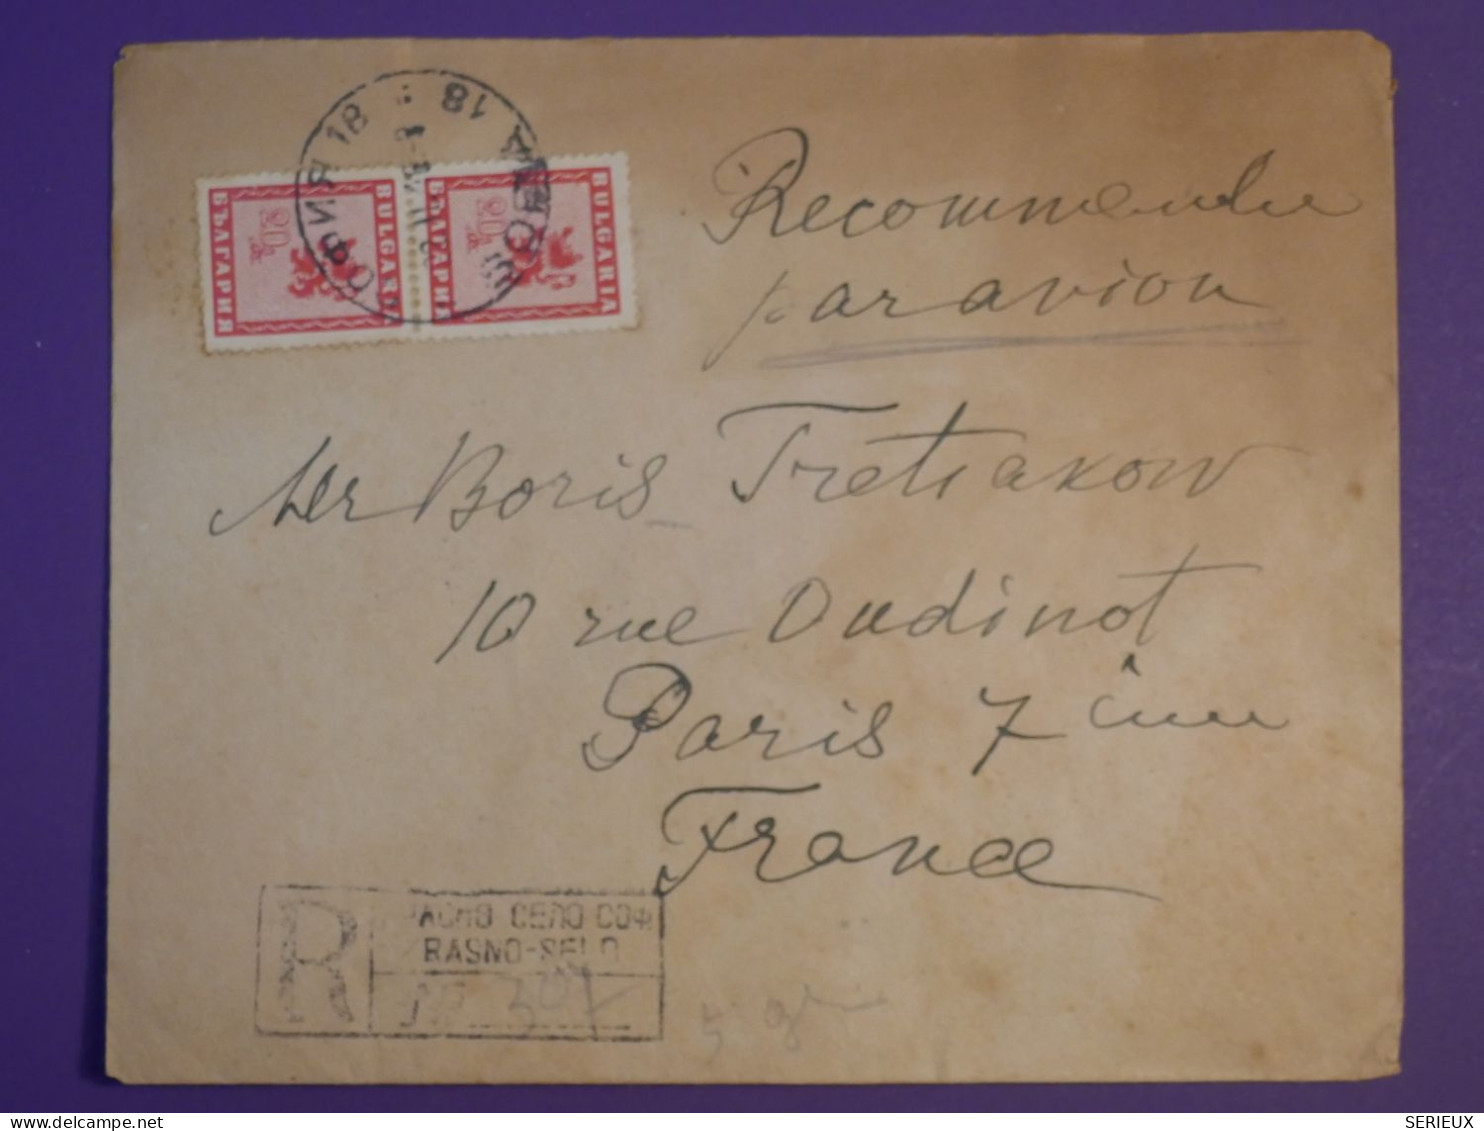 СОФИЯ 18
18
BULGARIA
20
БЪЛГАРИЯ
BULGARIA
20
БЪЛГАРИЯ
Recommandee
par avion
Mr Boris Tretiakow
10 rue Oudinot
Paris 7 ième
France
R
РАСНО СЕЛО СОФ
RASNO-SELO
№ 307
5 gr
SERIEUX